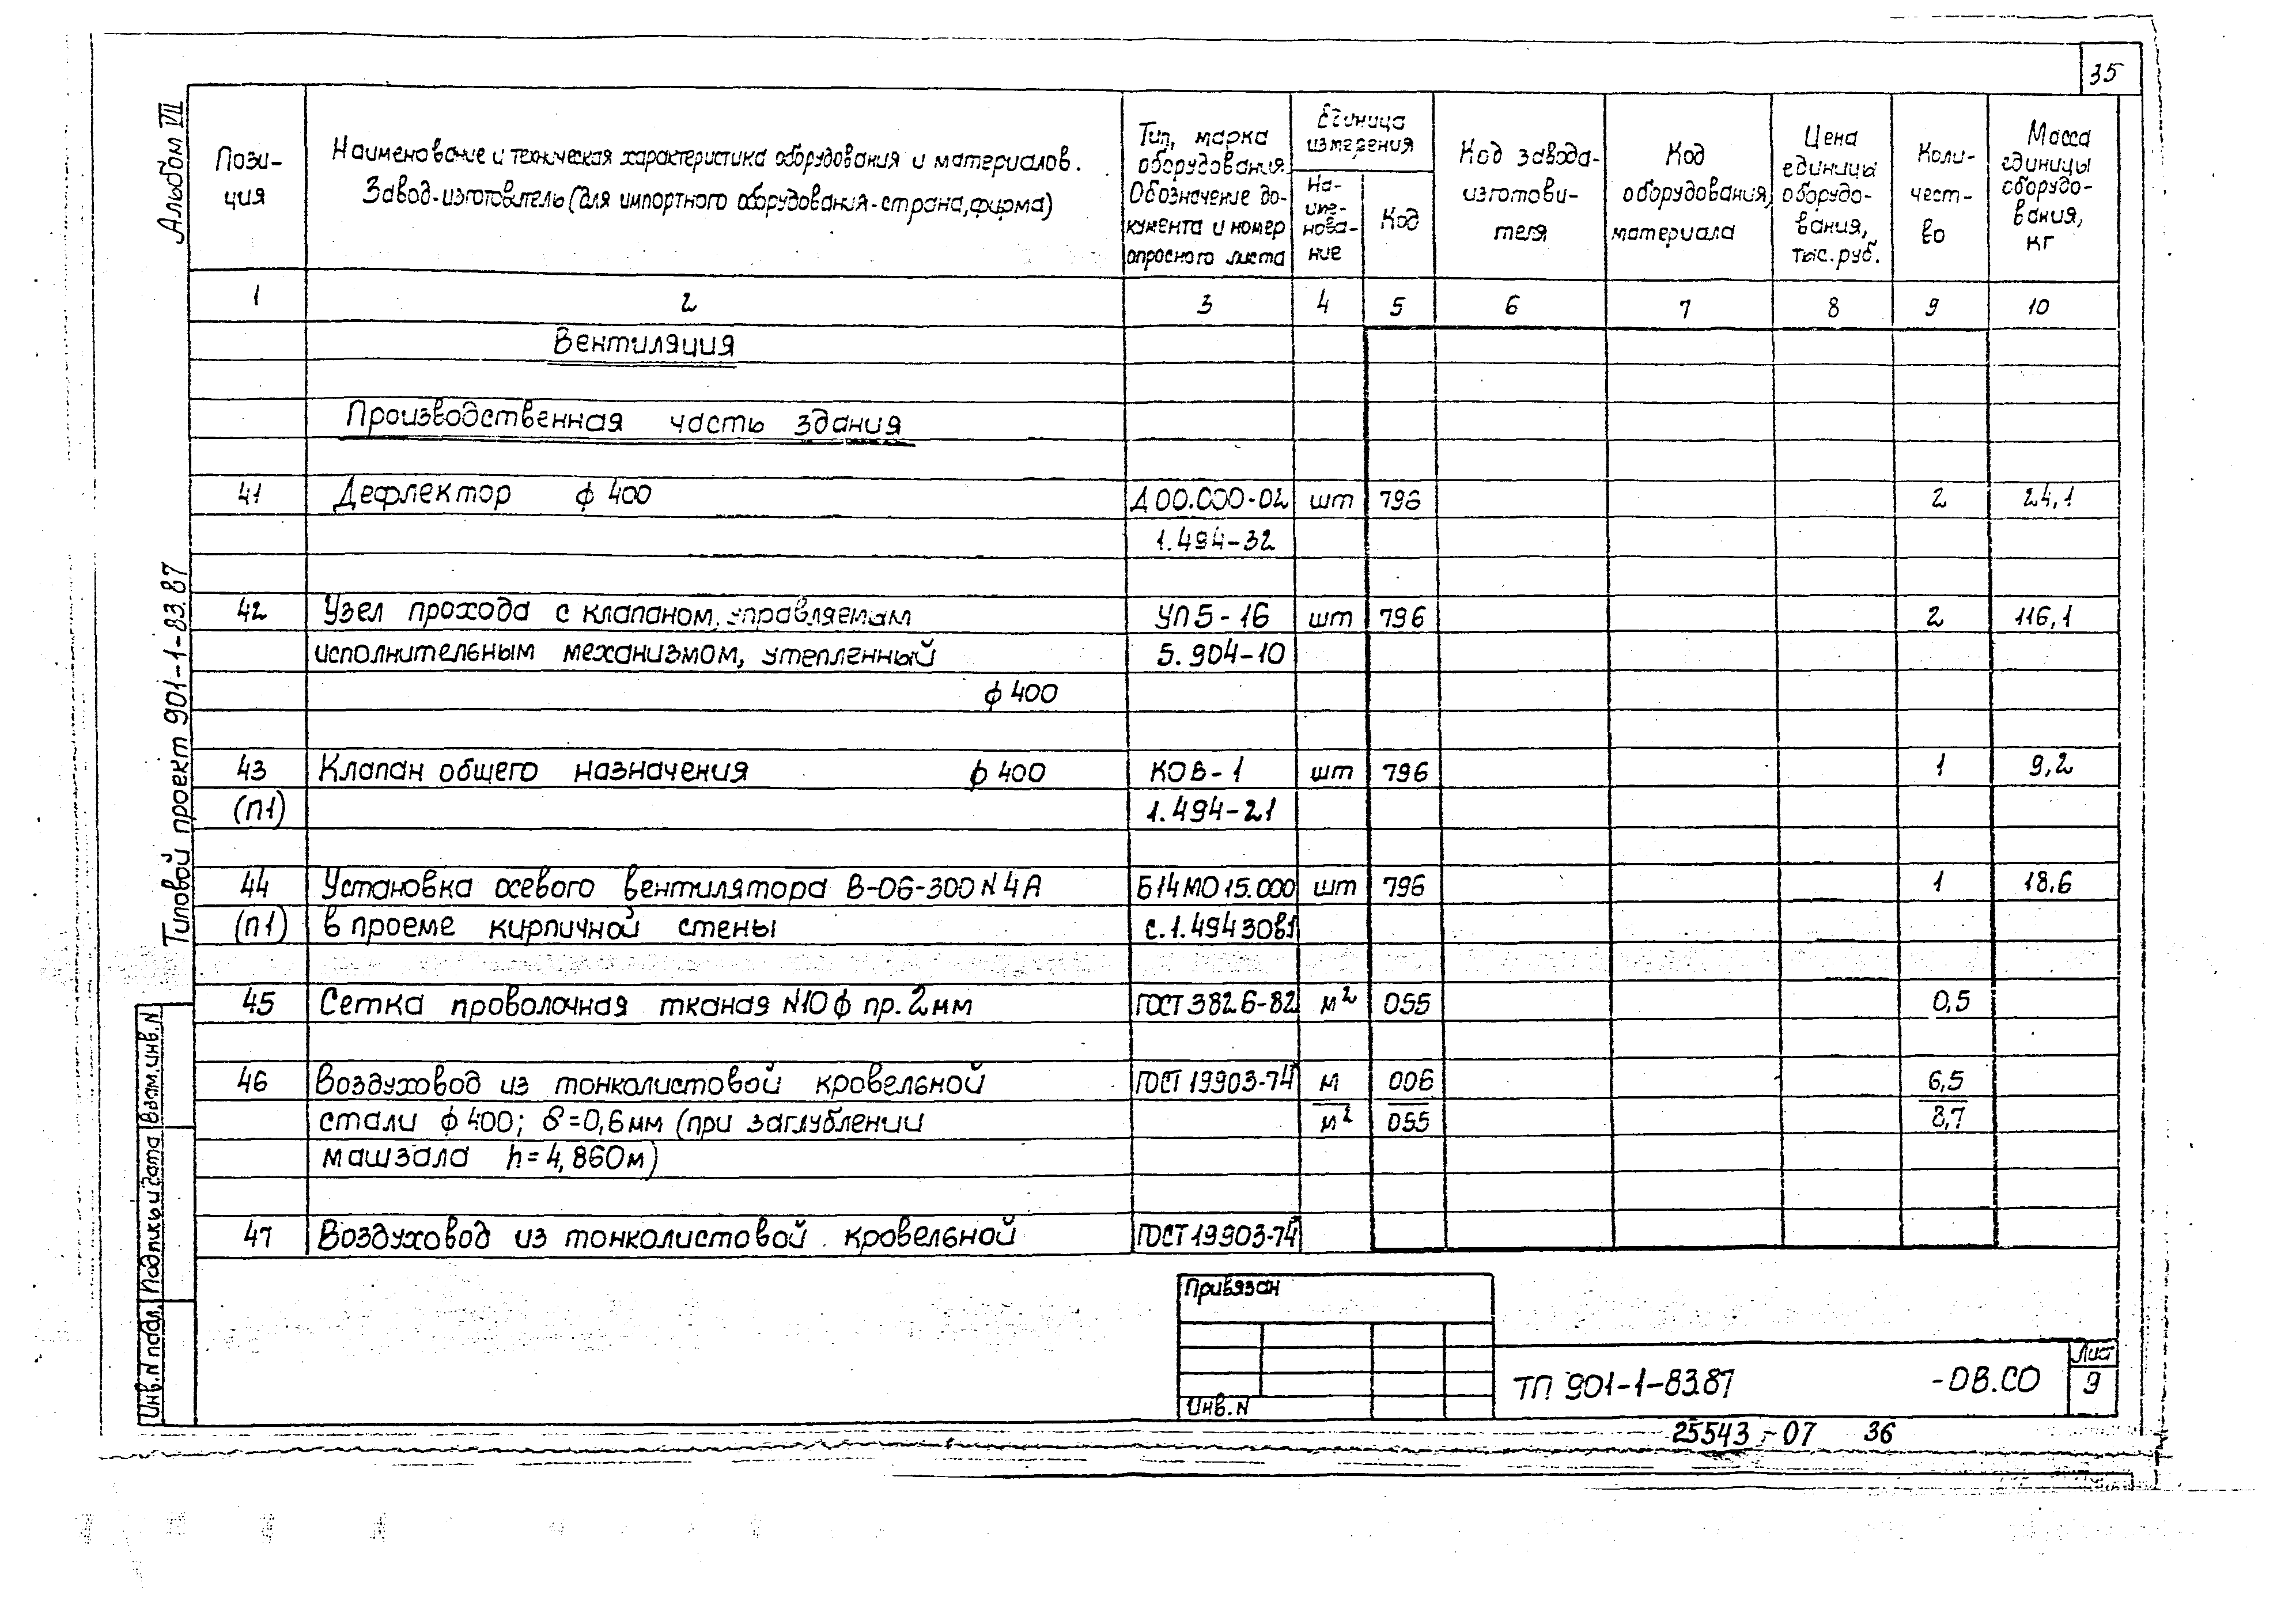 35
Альбом VII
Типовой проект 901-1-83.87
Пози-
ция
Наименование и техническая характеристика оборудования и материалов.
Завод-изготовитель (для импортного оборудования-страна, фирма)
Тип, марка
оборудования.
Обозначение до-
кумента и номер
опросного листа
Единица
измерения
На-
име-
нова-
ние
Код
Код завода-
изготови-
теля
Код
оборудования,
материала
Цена
единицы
оборудо-
вания,
тыс. руб.
Коли-
чест-
во
Масса
единицы
оборудо-
вания,
кг
1 2 3 4 5 6 7 8 9 10
Вентиляция
Производственная часть здания
41 Дефлектор ф 400 Д 00.000-02 шт 796 2 24,1
1.494-32
42 Узел прохода с клапаном, управляемам УП5-16 шт 796 2 116,1
исполнительным механизмом, утепленный 5.904-10
ф 400
43 Клапан общего назначения ф 400 КОВ-1 шт 796 1 9,2
(п1) 1.494-21
44 Установка осевого вентилятора В-06-300 N 4А Б14М015.000 шт 796 1 18.6
(п1) в проеме кирпичной стены с.1.494 30в1
45 Сетка проволочная тканая N10 ф пр. 2мм ГОСТ 3826-82 м² 055 0,5
46 Воздуховод из тонколистовой кровельной ГОСТ 19903-74 м 006 6,5
стали ф 400; δ=0,6мм (при заглублении м² 055 8,7
машзала h=4,860м)
47 Воздуховод из тонколистовой кровельной ГОСТ 19903-74
Инв. N подл. Подпись и дата Взам. инв. N
Привязан
Инв. N
ТП 901-1-83.87 -ОВ.СО
Лист
9
25543-07 36